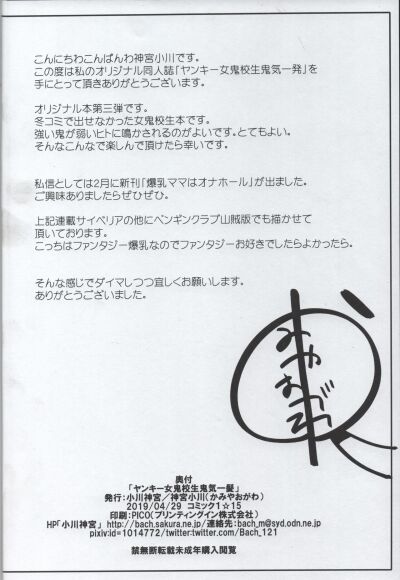 こんにちわこんばんわ神宮小川です。
この度は私のオリジナル同人誌「ヤンキー女鬼校生鬼気一発」を
手にとって頂きありがとうございます。
オリジナル本第三弾です。
冬コミで出せなかった女鬼校生本です。
強い鬼が弱いヒトに鳴かされるのがよいです。とてもよい。
そんなこんなで楽しんで頂けたら幸いです。
私信としては2月に新刊「爆乳ママはオナホール」が出ました。
ご興味ありましたらぜひぜひ。
上記連載サイベリアの他にペンギンクラブ山賊版でも描かせて
頂いております。
こっちはファンタジー爆乳なのでファンタジーお好きでしたらよかったら。
そんな感じでダイマしつつ宜しくお願いします。
ありがとうございました。
みやおがわ
奥付
「ヤンキー女鬼校生鬼気一髪」
発行:小川神宮/神宮小川(かみやおがわ)
2019/04/29 コミック1☆15
印刷:PICO(プリンティングイン株式会社)
HP「小川神宮」 http://bach.sakura.ne.jp/連絡先:bach_m@syd.odn.ne.jp
pixiv:id=1014772/twitter:twitter.com/Bach_121
禁無断転載未成年購入閲覧